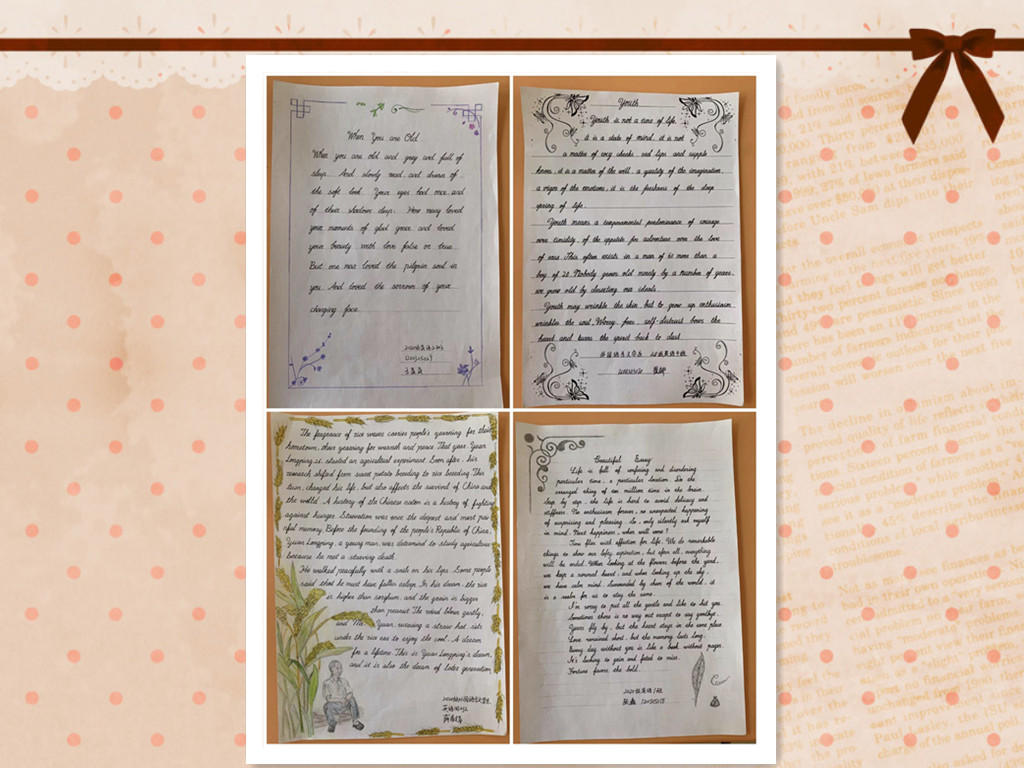 When You are Old
When you are old and grey and full of
sleep. And slowly read and dream of
the soft look. Your eyes had once and
of their shadows deep. How many loved
your moments of glad grace and loved
your beauty with love false or true.
But one man loved the pilgrim soul in
you. And loved the sorrows of your
changing face.
Youth
Youth is not a time of life,
it is a state of mind, it is not
a matter of rosy cheeks red lips and supple
knees, it is a matter of the will, a quality of the imagination
a vigor of the emotions, it is the freshness of the deep
spring of life.
Youth means a temperamental predominance of courage
over timidity of the appetite for adventure over the love
of ease. This often exists in a man of 60 more than a
boy of 20. Nobody grows old merely by a number of years,
we grow old by deserting our ideals.
Youth may wrinkle the skin, but to give up enthusiasm
wrinkles the soul. Worry, fear, self-distrust bows the
heart and turns the spirit back to dust
The fragrance of rice waves carries people's yearning for their
hometown, their yearning for warmth and peace. That year Yuan
Longping started an agricultural experiment. Soon after, his
research shifted from sweet potato breeding to rice breeding. This
turn, changed his life, but also affects the survival of China and
the world. A history of the Chinese nation is a history of fighting
against hunger. Starvation was once the deepest and most pai-
nful memory. Before the founding of the people's Republic of China,
Yuan Longping, a young man, was determined to study agriculture
because he met a starving death.
He walked peacefully with a smile on his lips. Some people
said that he must have fallen asleep. In his dream, the rice
is higher than sorghum, and the grain is bigger
than peanut. The wind blows gently,
and Mr. Yuan, wearing a straw hat, sits
under the rice ear to enjoy the cool. A dream
for a lifetime. This is Yuan Longping's dream,
and it is also the dream of later generations
Beautiful Essay
Life is full of confusing and disordering
particular time, a particular location. Do the
arranged thing of ten million time in the brain.
Step by step, the life is hard to avoid delicacy and
stiffness. No enthusiasm forever, no unexpected happening
of surprising and pleasing. So, only silently ask myself
in mind. Next happiness, when will come?
Time flies with affection for life. We do remarkable
things to show our lofty aspiration, but after all, everything
will be ended. When looking at the flowers before the yard,
we kept a normal heart, and when looking up the sky,
we have calm mind. Surrounded by
is a realm for us to stay the same.
I'm sorry to put all the gentle and like to hit you.
Sometimes there is no way out except to say goodbye.
Years fly by, but the heart stays in the same place
Love remained short, but the memory lasts long.
Every day without you is like a book without pages.
Fortune favors the bold.